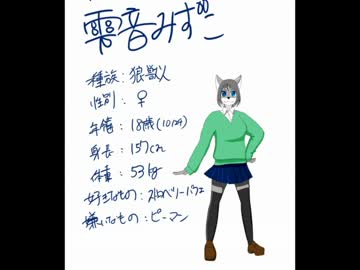 雫音みずこ
種族：狼獣人
性別：♀
年齢：18歳(10月4)
身長：157cm
体重：53kg
好きなもの：ストロベリーパフェ
嫌いなもの：ピーマン